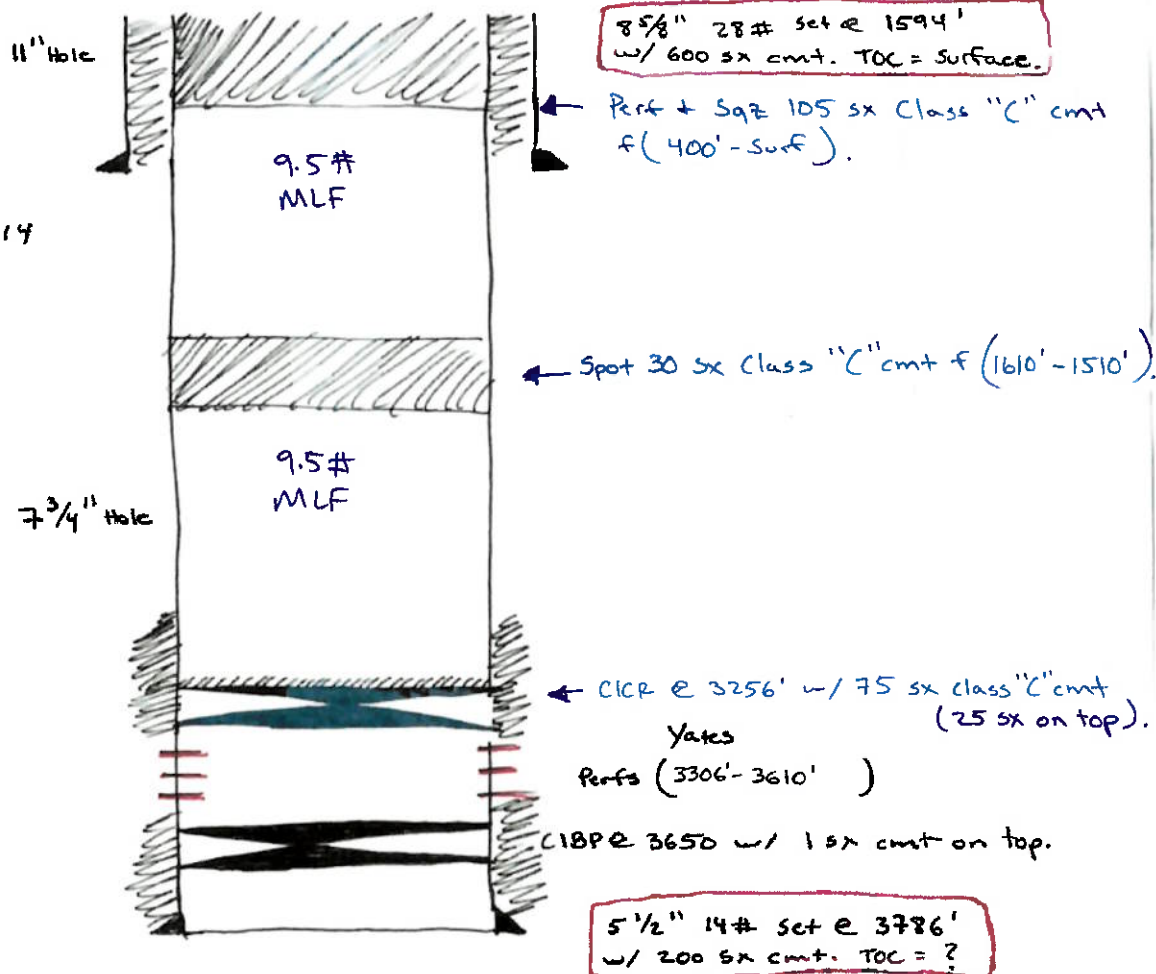 11" Hole
8 5/8" 28# set @ 1594'
w/ 600 sx cmt. TOC = Surface.
Perf + Sqz 105 sx Class "C" cmt
f( 400' - Surf ).
9.5#
MLF
14
Spot 30 sx Class "C" cmt f (1610' - 1510').
9.5#
MLF
7 3/4" Hole
CICR @ 3256' w/ 75 sx class "C" cmt
(25 sx on top).
Yates
Perfs (3306' - 3610' )
CIBP @ 3650 w/ 1 sx cmt on top.
5 1/2" 14# set @ 3786'
w/ 200 sx cmt. TOC = ?